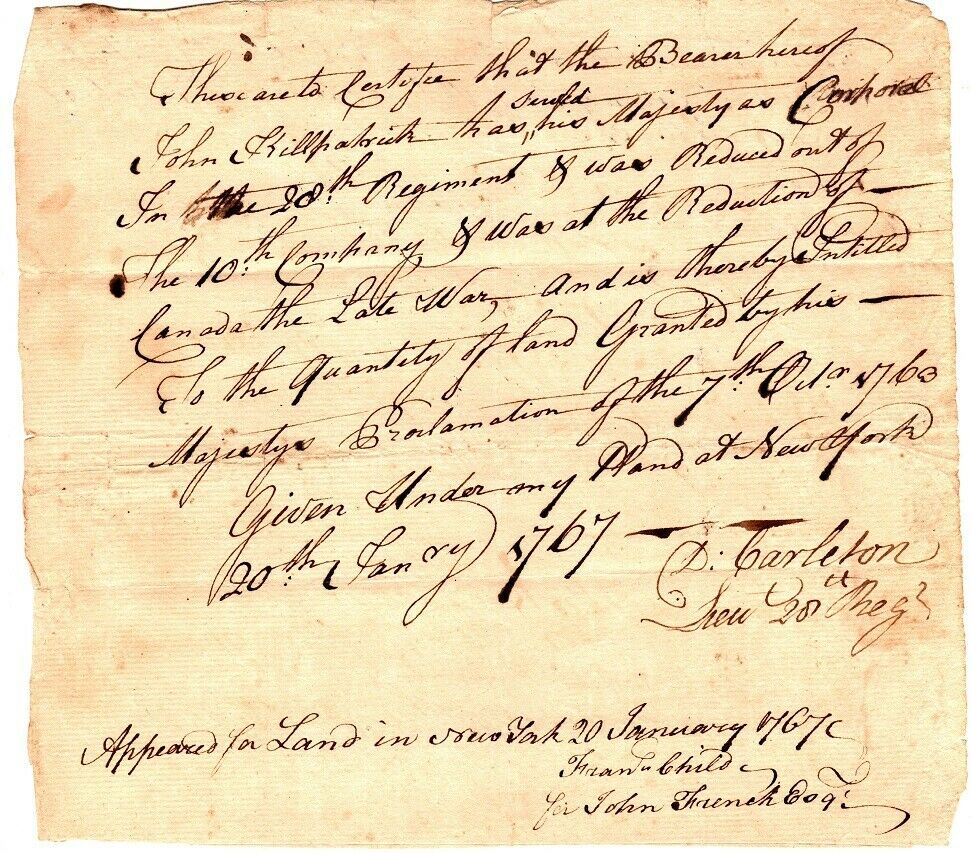 These are to Certifie that the Bearer hereof
John Killpatrick has served his Majesty as Corporal
In the 28th Regiment & was Reduced out of
The 10th Company & was at the Reduction of
Canada the Late War, and is thereby Intitled
To the Quantity of land Granted by his
Majestys Proclamation of the 7th Octr 1763
Given Under my Hand at New York
20th Janry 1767
D: Carleton
Lieut 28th Regt
Appeared for Land in New York 20 January 1767
Frans Child
for John French Esqr